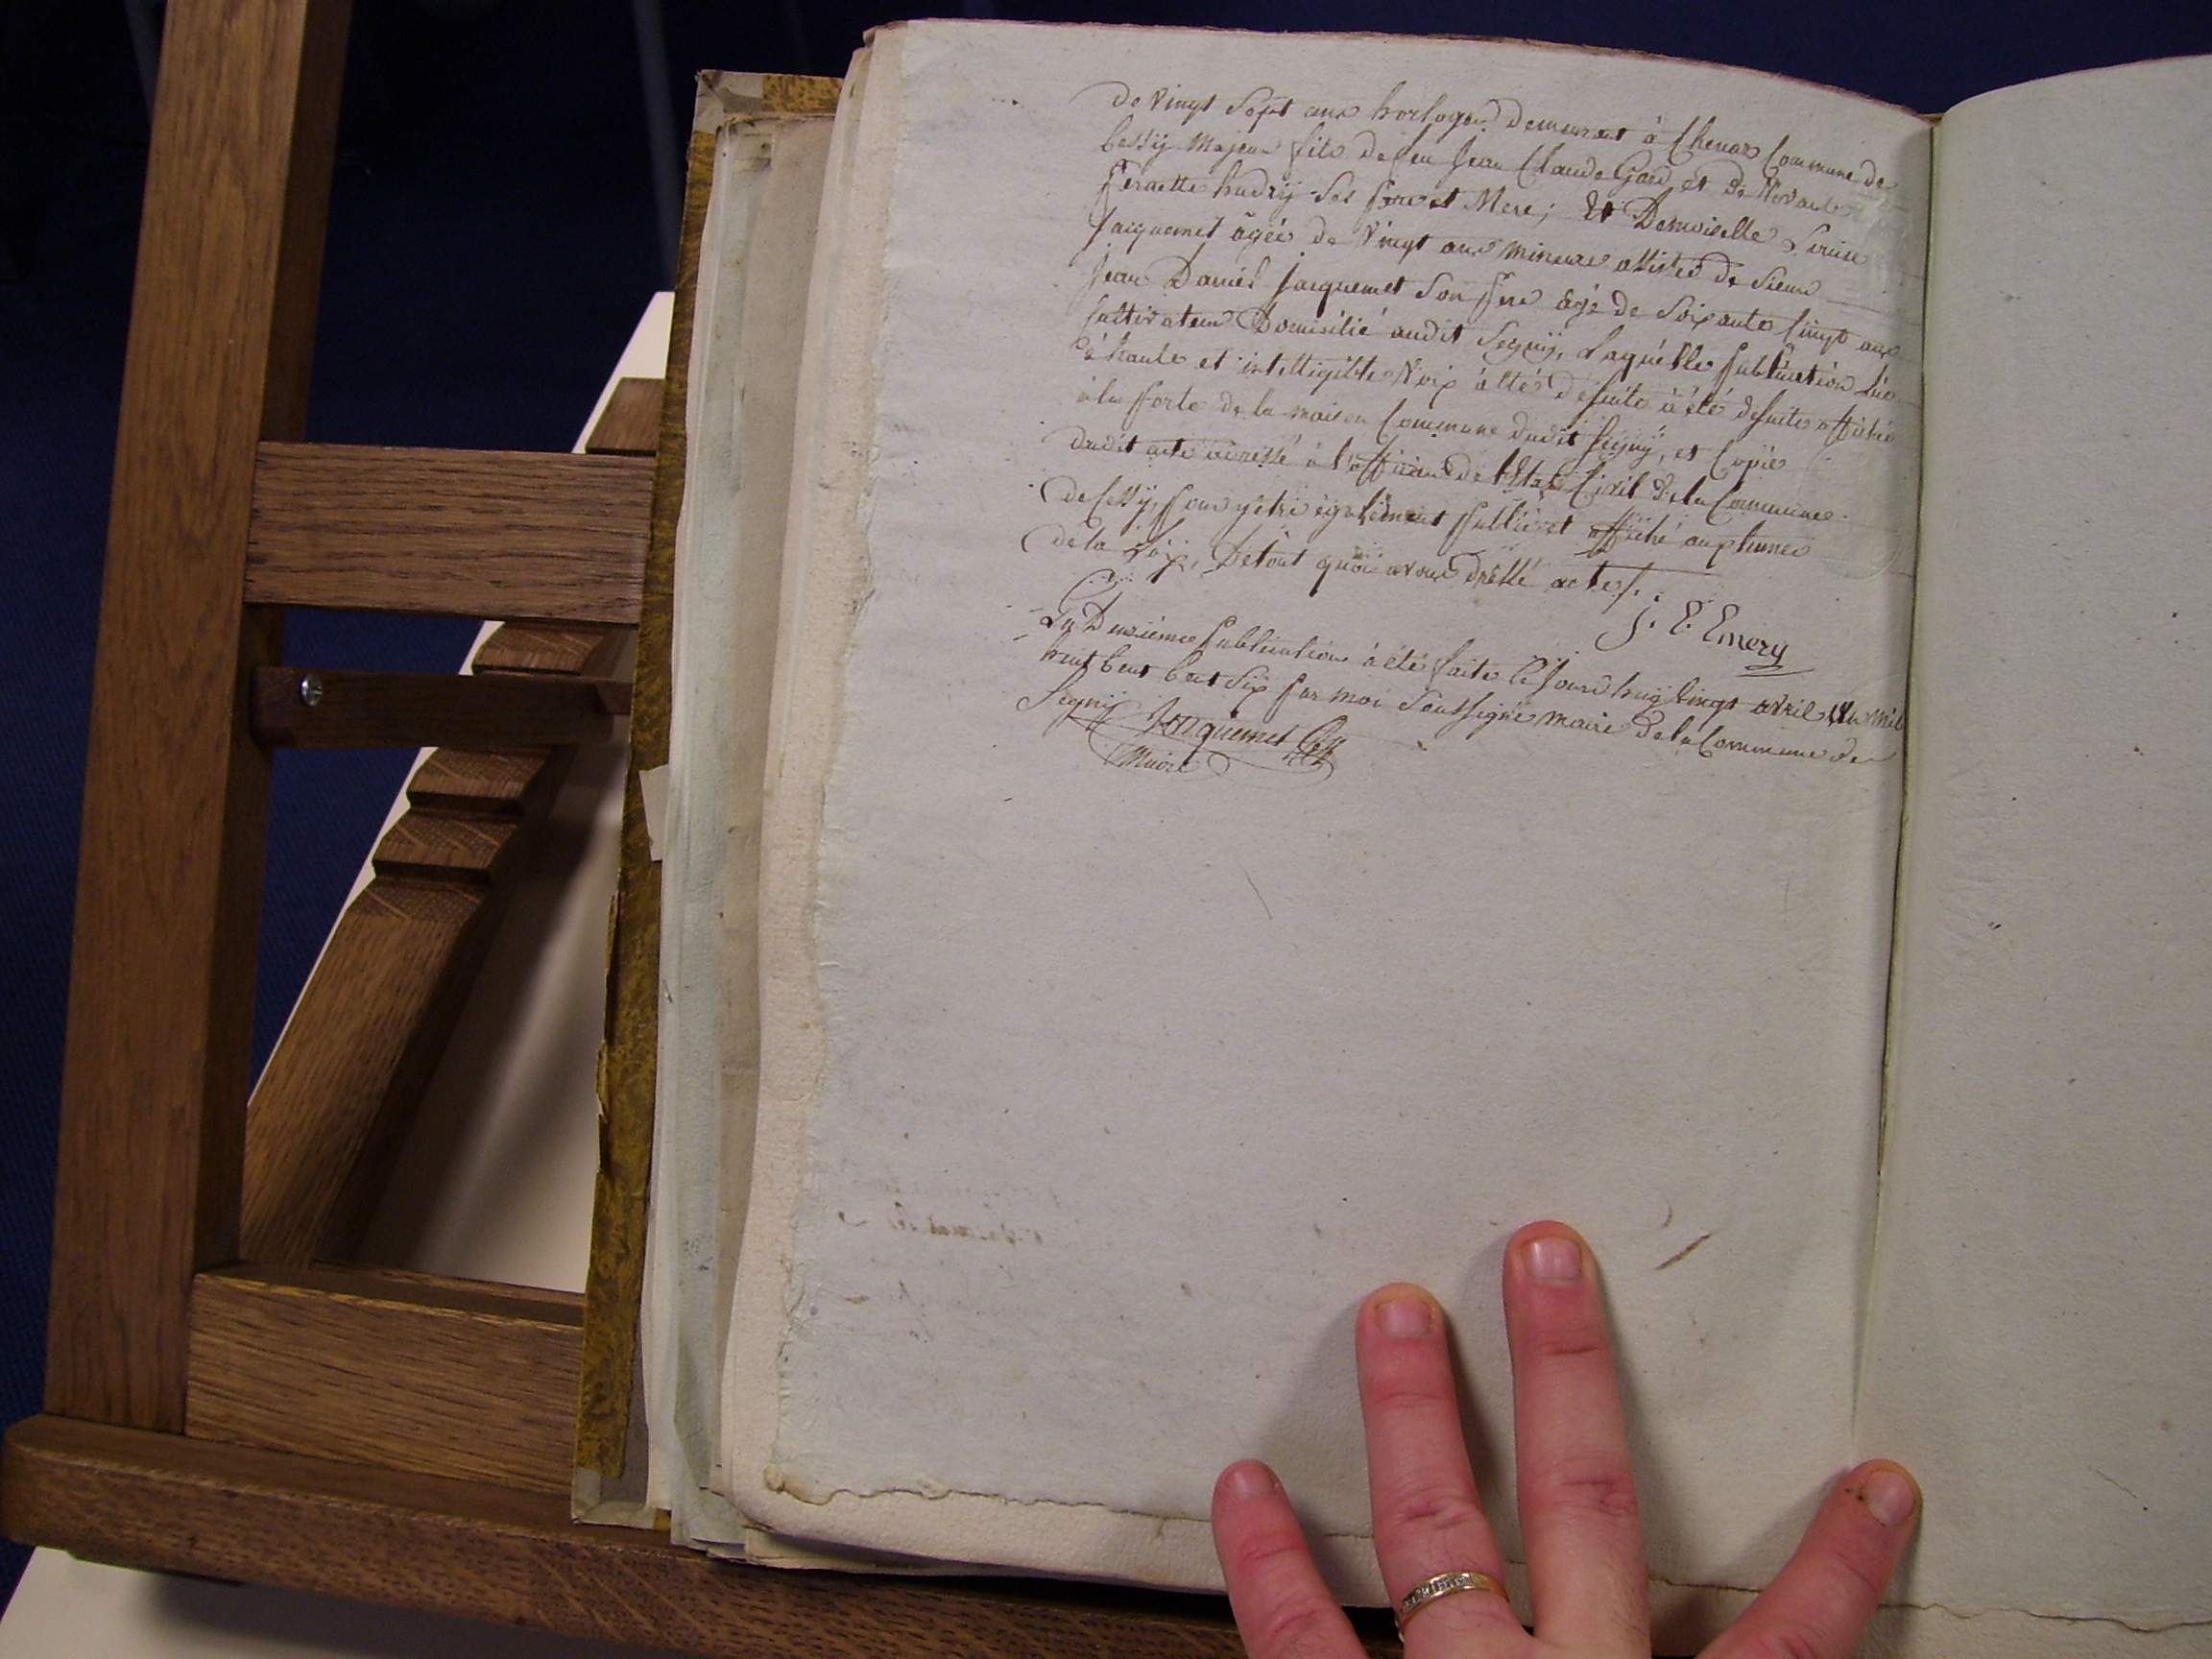 de vingt sept ans horloger demeurant à Chenaz Commune de
Cessÿ Majeur fils de feu Jean Claude Gard et de
Pernette hudrÿ ses Pere et Mere; Et Demoiselle Louise
Jacquemet âgée de Vingt ans mineure assistée de Sieur
Jean Daniel Jacquemet son Pere âgé de Soixante Cinq ans
Cultivateur Domicilié audit Segnÿ, Laquelle Publication Lüe
à haute et intelligible Voix a été de suite à été de suite affiché
à la Porte de la maison Commune dudit Segnÿ, et Copie
dudit acte adressé à l'officier de l'Etat Civil de la Commune
de Cessÿ, Pour ÿ être également Publié et affiché aux termes
de la Loix, De tout quoi avons dressé acte /.
J. C. Emery
La Deuxième Publication à été faite Ce Jourd'huÿ Vingt avril mil
huit Cent Cent Six Par moi Soussigné maire de la Commune de
Segnÿ Jacquemet
Maire